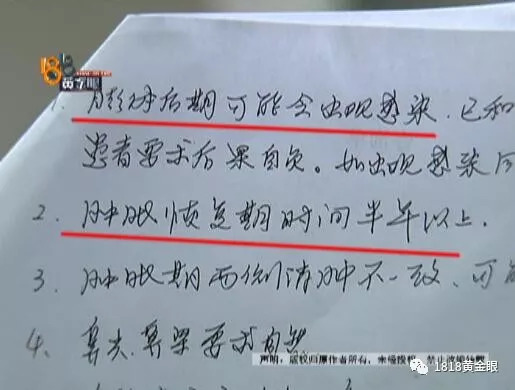 1818
黄金眼
1. 膨体后期可能会出现感染,已和
患者要求后果自负。如出现感染
2. 肿胀恢复期时间半年以上.
3. 肿胀期两侧消肿不一致、可
4. 鼻尖.鼻梁要求自然
声明:版权归原作者所有,未经授权,禁止
1818黄金眼